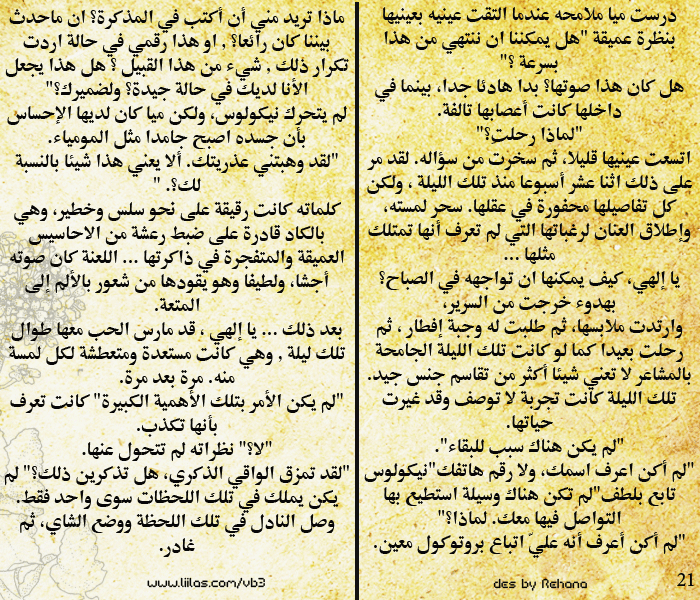 درست ميا ملامحه عندما التقت عينيه بعينيها
بنظرة عميقة "هل يمكننا ان ننتهي من هذا
بسرعة ؟"
هل كان هذا صوتها؟ بدا هادئا جدا، بينما في
داخلها كانت أعصابها تالفة.
"لماذا رحلتِ؟"
اتسعت عينيها قليلا، ثم سخرت من سؤاله. لقد مر
على ذلك اثنا عشر أسبوعا منذ تلك الليلة ، ولكن
كل تفاصيلها محفورة في عقلها. سحر لمسته،
وإطلاق العنان لرغباتها التي لم تعرف أنها تمتلك
مثلها ...
يا إلهي، كيف يمكنها ان تواجهه في الصباح؟
بهدوء خرجت من السرير،
وارتدت ملابسها، ثم طلبت له وجبة إفطار ، ثم
رحلت بعيدا كما لو كانت تلك الليلة الجامحة
بالمشاعر لا تعني شيئا أكثر من تقاسم جنس جيد.
تلك الليلة كانت تجربة لا توصف وقد غيرت
حياتها.
"لم يكن هناك سبب للبقاء".
"لم أكن اعرف اسمك، ولا رقم هاتفك"نيكولوس
تابع بلطف"لم تكن هناك وسيلة استطيع بها
التواصل فيها معك. لماذا؟"
"لم أكن أعرف أنه عليّ اتباع بروتوكول معين.
des by Rehana
21
ماذا تريد مني أن أكتب في المذكرة؟ ان ماحدث
بيننا كان رائعا؟ , او هذا رقمي في حالة اردت
تكرار ذلك , شيء من هذا القبيل ؟ هل هذا يجعل
الأنا لديك في حالة جيدة؟ ولضميرك؟"
لم يتحرك نيكولوس، ولكن ميا كان لديها الإحساس
بأن جسده اصبح جامدا مثل المومياء.
"لقد وهبتني عذريتك. ألا يعني هذا شيئا بالنسبة
لك؟. "
كلماته كانت رقيقة على نحو سلس وخطير، وهي
بالكاد قادرة على ضبط رعشة من الاحاسيس
العميقة والمتفجرة في ذاكرتها ... اللعنة كان صوته
أجشا، ولطيفا وهو يقودها من شعور بالألم إلى
المتعة.
بعد ذلك ... يا إلهي ، قد مارس الحب معها طوال
تلك ليلة , وهي كانت مستعدة ومتعطشة لكل لمسة
منه. مرة بعد مرة.
"لم يكن الأمر بتلك الأهمية الكبيرة" كانت تعرف
بأنها تكذب.
"لا؟" نظراته لم تتحول عنها.
"لقد تمزق الواقي الذكري، هل تذكرين ذلك؟" لم
يكن يملك في تلك اللحظات سوى واحد فقط.
وصل النادل في تلك اللحظة ووضع الشاي، ثم
غادر.
www.liilas.com/vb3